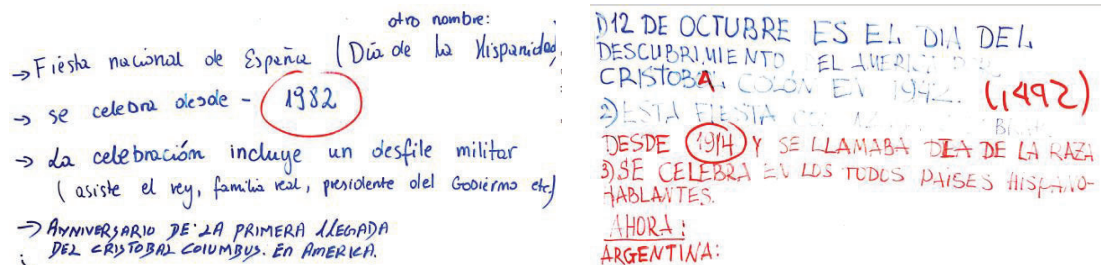 otro nombre:
→ Fiesta nacional de España (Día de la Hispanidad
→ se celebra desde - 1982
→ La celebración incluye un desfile militar
(asiste el rey, familia real, presidente del Gobierno etc)
→ ANNIVERSARIO DE LA PRIMERA LLEGADA
DEL CRISTOBAL COLUMBUS. EN AMERICA.
1) 12 DE OCTUBRE ES EL DIA DEL
DESCUBRIMIENTO EL AMERICA
CRISTOBAL COLÓN EN 1942. (1492)
2) ESTA FIESTA
DESDE 1914 Y SE LLAMABA DIA DE LA RAZA
3) SE CELEBRA EN LOS TODOS PAISES HISPANO-
HABLANTES.
AHORA:
ARGENTINA: